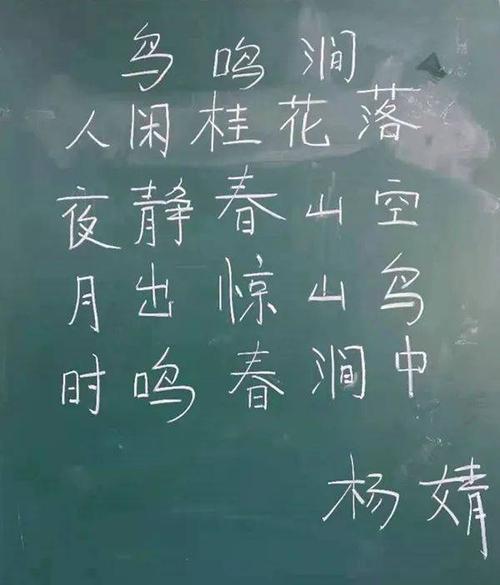 鸟鸣涧
人闲桂花落
夜静春山空
月出惊山鸟
时鸣春涧中
杨婧